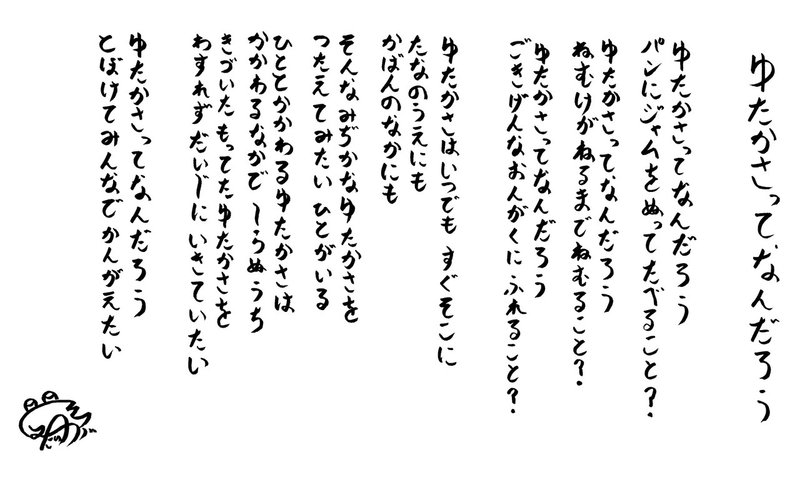 ゆたかさってなんだろう
ゆたかさってなんだろう
パンにジャムをぬってたべること?
ゆたかさってなんだろう
ねむけがねるまでねむること?
ゆたかさってなんだろう
ごきげんなおんがくにふれること?
ゆたかさはいつでも すぐそこに
たなのうえにも
かばんのなかにも
そんなみぢかなゆたかさを
つたえてみたい ひとがいる
ひととかかわるゆたかさは
かかわるなかで しらぬうち
きづいた もってた ゆたかさを
わすれず だいじに いきていたい
ゆたかさってなんだろう
とぼけてみんなで かんがえたい